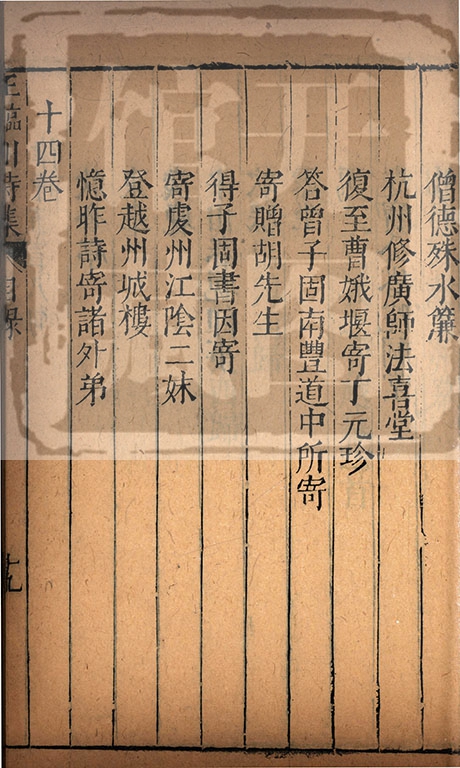 僧德殊水簾
杭州修廣師法喜堂
復至曹娥堰寄丁元珍
答曾子固南豐道中所寄
寄贈胡先生
得子固書因寄
寄虔州江陰二妹
登越州城樓
憶昨詩寄諸外弟
十四卷
王臨川詩集 目録
十九